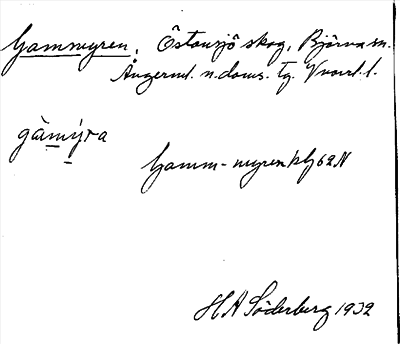 Gammyren, Östansjö skog, Björna sn.
Ångerml. n. doms. tg. Västrl. l.
gàmýra
Gamm-myren kg 62N
H A Söderberg 1932